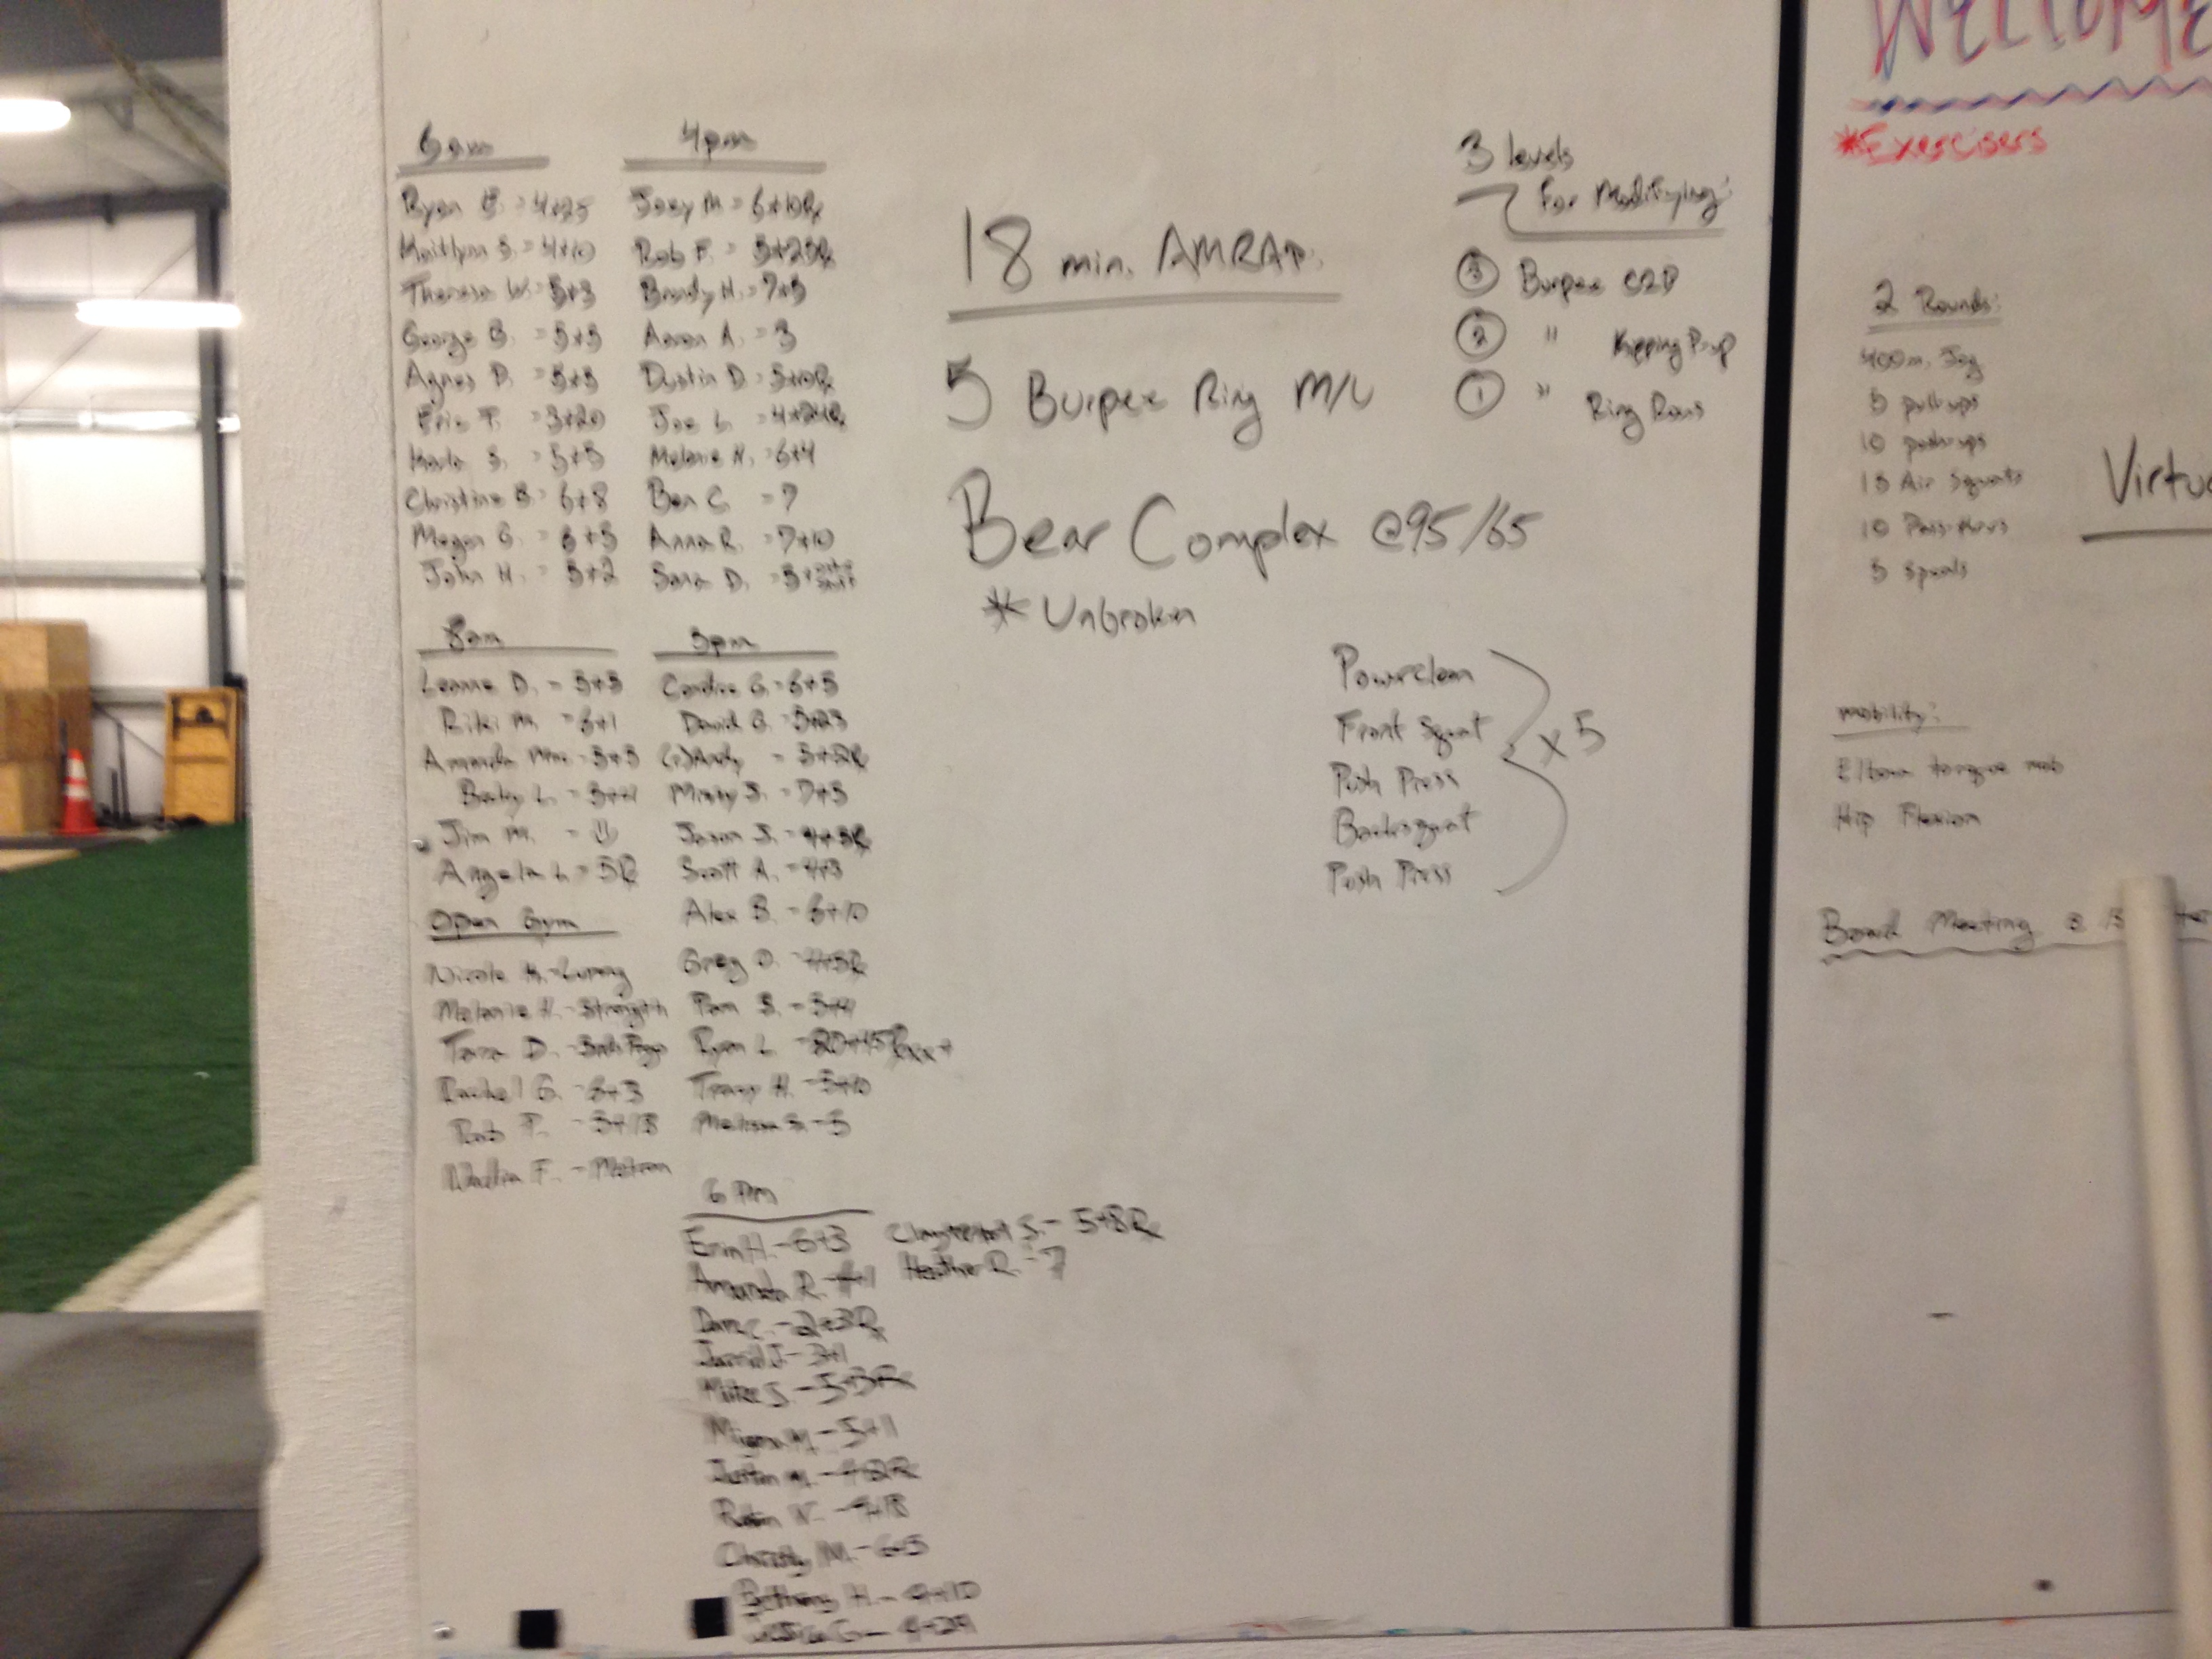 6am
Ryan B. = 4+25
Kaitlynn S. = 4+10
Theresa W. = 5+3
George B. = 5+5
Agnes D. = 5+5
Eric F. = 3+20
Karla S. = 5+5
Christina B. = 6+8
Megan G. = 6+5
John H. = 5+2
8am
Leanne D. = 5+5
Riki M. = 6+1
Amanda = 5+5
Becky L. = 5+4
Jim M. =
Angela L. = 5R
Open Gym
Nicole
Melanie H. - Strength
Tara D. -
Rachel G. - 6+3
Rob F. - 5+18
Nadia F. - Metcon
4pm
Joey M = 6+10Rx
Rob F. = 5+23Rx
Brandy H. = 7+5
Aaron A. = 3
Dustin D. = 5+10Rx
Joe L. = 4+24Rx
Melanie H. = 6+4
Ben C. = 7
Anna R. = 7+10
Sara D. =
5pm
Candice G. = 6+5
David G. = 5+23
Andy = 5+5Rx
Missy S. = 7+5
Jason J. = 4+5Rx
Scott A. = 4+3
Alex B. - 6+10
Greg O. - 4+5R
Pam S. - 5+4
Ryan L. - 20+45Rxxx+
Tracy H. - 5+10
Melissa S. - 5
6 PM
Erin H. - 6+3
Amanda R.
Dan C. - 2+3Rx
Jarrid J - 3+1
Mike J. - 5+3Rx
M. - 5+1
Justin M. - 4+2Rx
Robin W. - 4+18
Christy M. - 6+5
Bethany H. - 4+10
G - 4+29
S. - 5+8Rx
Heather R. - 7
18 min. AMRAP.
5 Burpee Ring M/U
Bear Complex @95/65
* Unbroken
Powerclean
Front Squat
Push Press
Backsquat
Push Press
x 5
3 levels
For Modifying:
③ Burpee C2B
② " Kipping P-up
① " Ring Rows
WELCOME
*Exercisers
2 Rounds:
400m. Jog
5 pullups
10 pushups
15 Air Squats
10 Pass-thrus
5 Speals
mobility:
Elbow torque mob
Hip Flexion
Board Meeting @